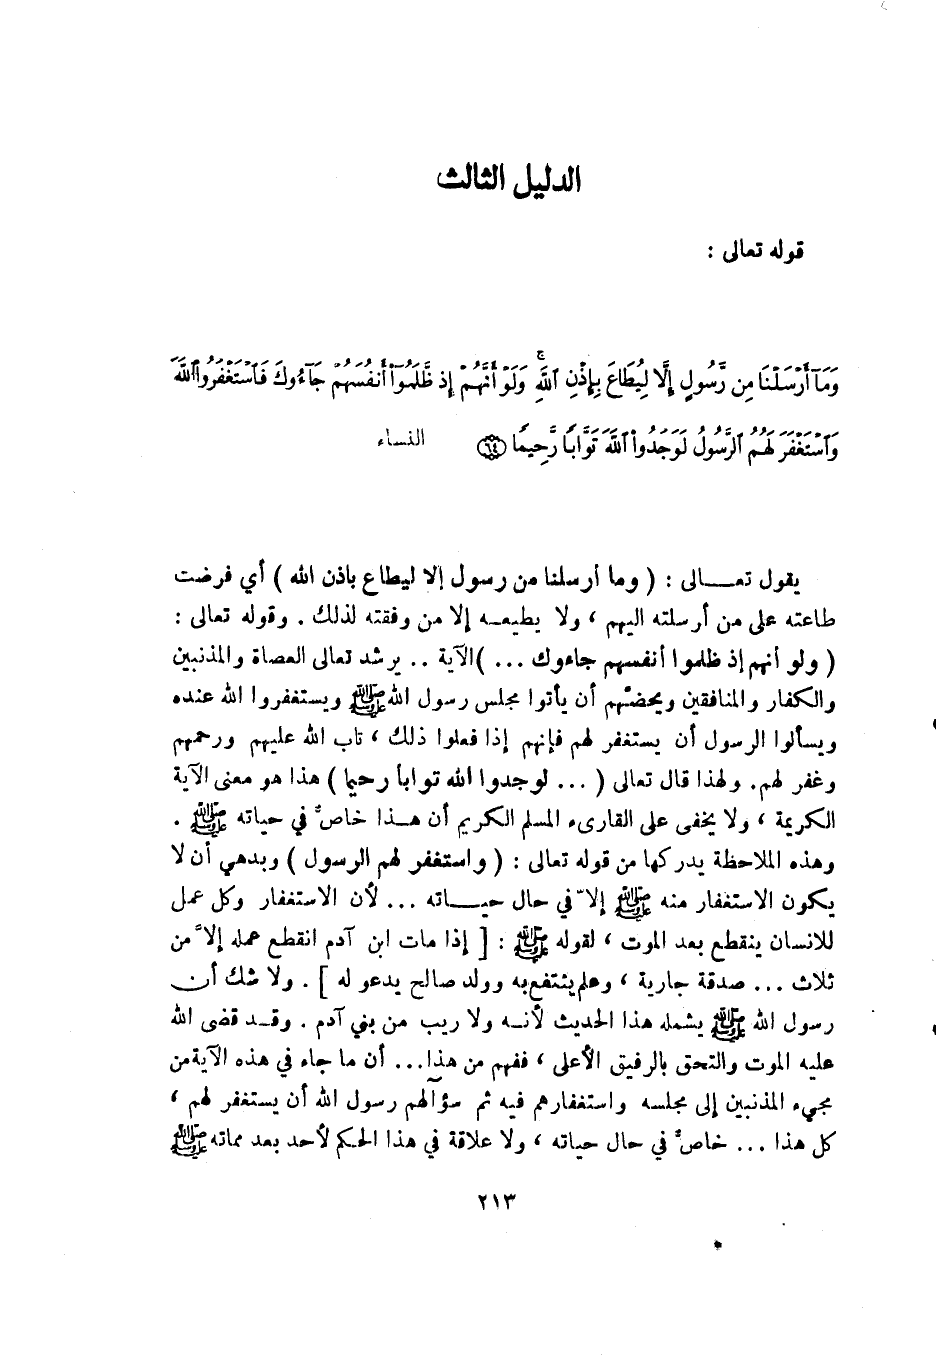 الدليل الثالث
قوله تعالى :
وَمَآ أَرْسَلْنَا مِن رَّسُولٍ إِلَّا لِيُطَاعَ بِإِذْنِ ٱللَّهِ ۚ وَلَوْ أَنَّهُمْ إِذ ظَّلَمُوٓا۟ أَنفُسَهُمْ جَآءُوكَ فَٱسْتَغْفَرُوا۟ ٱللَّهَ
وَٱسْتَغْفَرَ لَهُمُ ٱلرَّسُولُ لَوَجَدُوا۟ ٱللَّهَ تَوَّابًا رَّحِيمًا ٦٤ النساء
يقول تعـــالى : ( وما أرسلنا من رسول إلا ليطاع باذن الله ) أي فرضت
طاعته على من أرسلته اليهم ، ولا يطيعـه إلا من وفقته لذلك . وقوله تعالى :
( ولو أنهم إذ ظلموا أنفسهم جاءوك ... )الآية .. يرشد تعالى العصاة والمذنبين
والكفار والمنافقين ويحضّهم أن يأتوا مجلس رسول الله ﷺ ويستغفروا الله عنده
ويسألوا الرسول أن يستغفر لهم فإنهم إذا فعلوا ذلك ، تاب الله عليهم ورحمهم
وغفر لهم. ولهذا قال تعالى ( ... لوجدوا الله تواباً رحيما ) هذا هو معنى الآية
الكريمة ، ولا يخفى على القارىء المسلم الكريم أن هـذا خاصٌ في حياته ﷺ .
وهذه الملاحظة يدركها من قوله تعالى : ( واستغفر لهم الرسول ) وبدهي أن لا
يكون الاستغفار منه ﷺ إلاّ في حال حيـــاته ... لأن الاستغفار وكل عمل
للانسان ينقطع بعد الموت ، لقوله ﷺ : [ إذا مات ابن آدم انقطع عمله إلاّ من
ثلاث ... صدقة جارية ، وعلم ينتفع به وولد صالح يدعو له ] . ولا شك أن
رسول الله ﷺ يشمله هذا الحديث لأنـه ولا ريب من بني آدم . وقـد قضى الله
عليه الموت والتحق بالرفيق الأعلى ، ففهم من هذا... أن ما جاء في هذه الآية من
مجيء المذنبين إلى مجلسه واستغفارهم فيه ثم سؤآلهم رسول الله أن يستغفر لهم ،
كل هذا ... خاصٌ في حال حياته ، ولا علاقة في هذا الحكم لأحد بعد مماته ﷺ
٢١٣